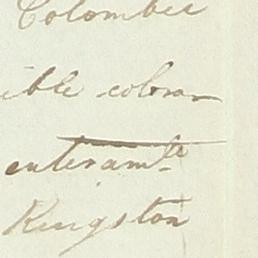 Colombie
ible colom
enteramte
Kingston